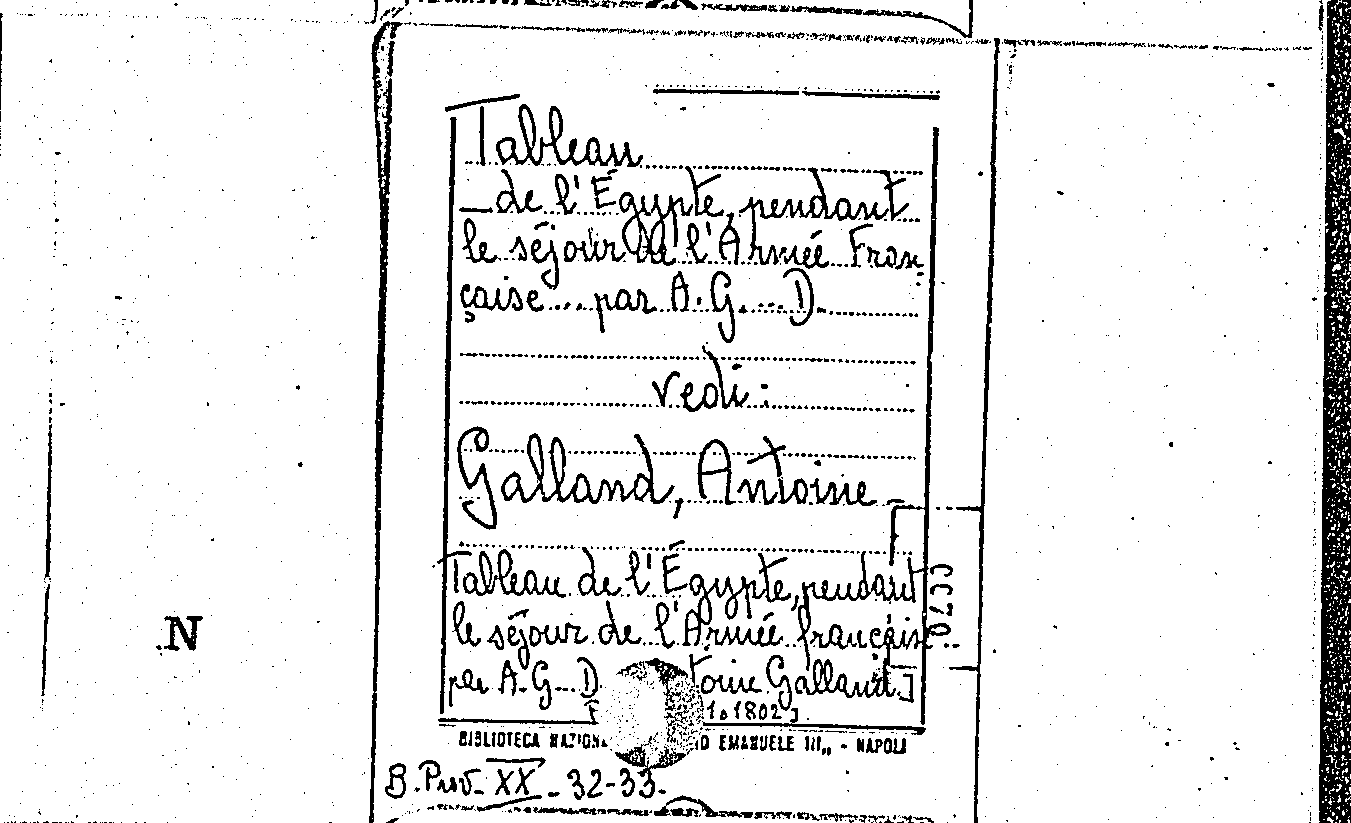 Tableau
de l'Égypte, pendant
le séjour de l'Armée Fran-
çaise... par A. G.... D.
vedi:
Galland, Antoine -
Tableau de l'Égypte, pendant
le séjour de l'Armée française..
par A. G... D toine Galland.]
1802]
BIBLIOTECA EMANUELE III,, - NAPOLI
B. Prov. XX - 32-33.
N